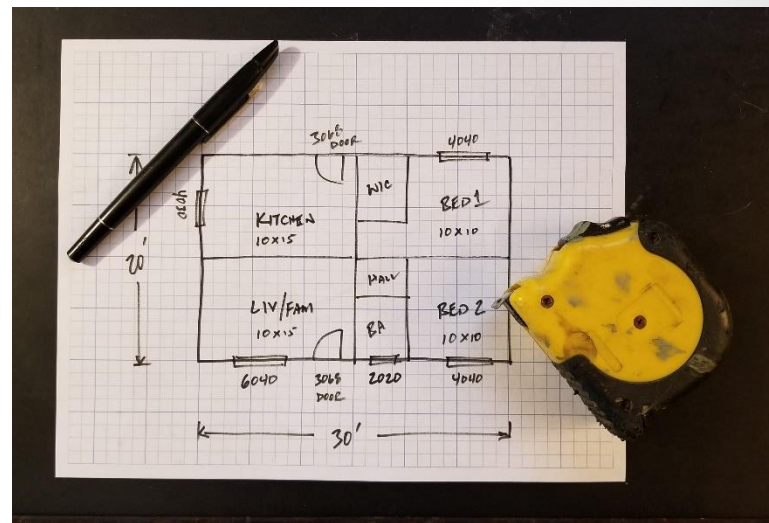 3068
DOOR
4040
WIC
4030
KITCHEN
10x15
BED 1
10x10
20'
HALL
LIV/FAM
10x15
BA
BED 2
10x10
6040
3068
DOOR
2020
4040
30'